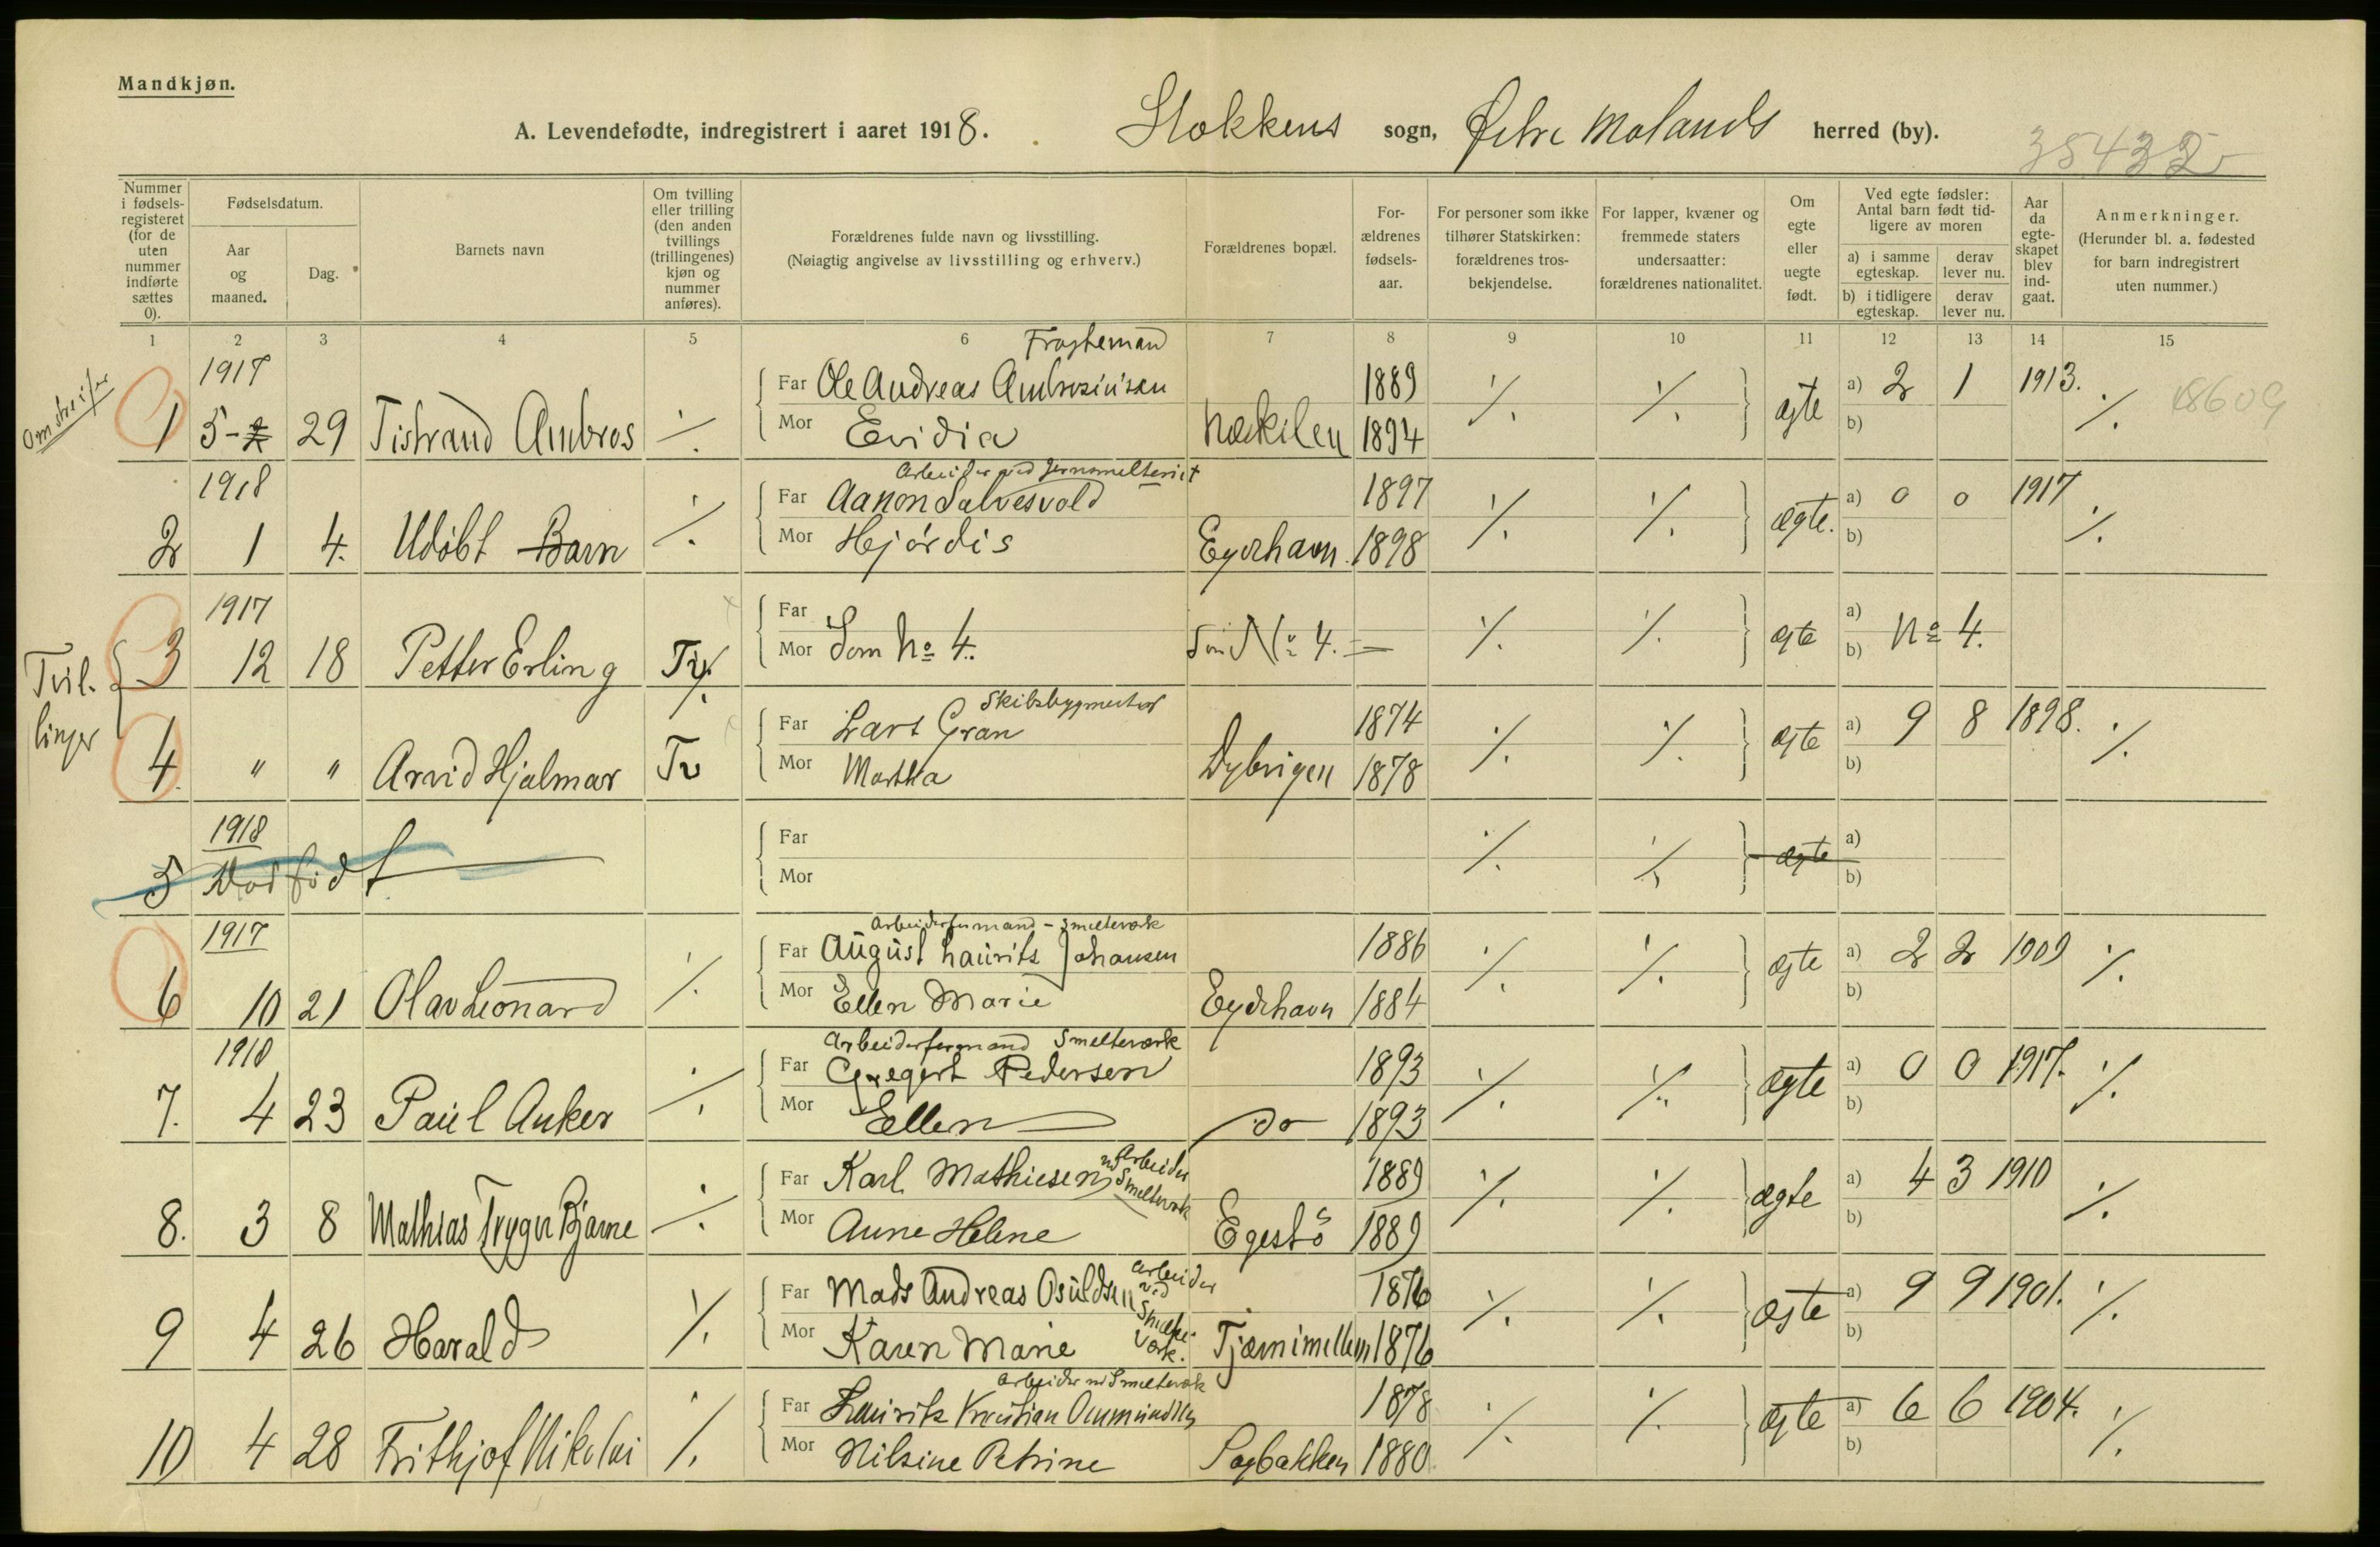 Mandkjøn.
A. Levendefødte, indregistrert i aaret 1918. Stokkens sogn, Østre Molands herred (by).
35432
Nummer i fødselsregisteret (for de uten nummer indførte sættes 0).
Fødselsdatum.
Aar og maaned.
Dag.
Barnets navn
Om tvilling eller trilling (den anden tvillings (trillingenes) kjøn og nummer anføres).
Forældrenes fulde navn og livsstilling.
(Nøiagtig angivelse av livsstilling og erhverv.)
Forældrenes bopæl.
Forældrenes fødselsaar.
For personer som ikke tilhører Statskirken: forældrenes trosbekjendelse.
For lapper, kvæner og fremmede staters undersaatter: forældrenes nationalitet.
Om egte eller uegte født.
Ved egte fødsler: Antal barn født tidligere av moren
a) i samme egteskap.
derav lever nu.
b) i tidligere egteskap.
derav lever nu.
Aar da egteskapet blev indgaat.
Anmerkninger.
(Herunder bl. a. fødested for barn indregistrert uten nummer.)
1 2 3 4 5 6 7 8 9 10 11 12 13 14 15
Omstreifer
1917 Fragtemand
Far Ole Andreas Ambrosiusen 1889 a) 2 1 1913. 18609
1 5 29 Tistrand Ambros ./. Mor Evidia Næskilen 1894 ./. ./. ægte b) ./.
1918 Arbeider ved Jernsmelteriet
Far Aanon Salvesvold 1897 a) 0 0 1917
2 1 4. Udöbt Barn ./. Mor Hjördis Eydehavn. 1898 ./. ./. ægte. b) ./.
1917 Far a)
Tvillinger
3 12 18 Petter Erling Tv. ./. Mor Som No 4. Som No 4. ./. ./. ægte b) No 4.
Skibsbygmester
Far Lars Gran 1874 a) 9 8 1898.
4. " " Arvid Hjalmar Tv Mor Martha Dybvigen 1878 ./. ./. ægte b) ./.
1918 Far a)
5 Dødfødt Mor ./. ./. ægte b)
1917 Arbeiderformand - Smelteverk
Far August Laurits Johansen 1886 a) 2 2 1909
6 10 21 Olav Leonard ./. Mor Ellen Marie Eydehavn 1884 ./. ./. ægte b) ./.
1918 Arbeiderformand Smelteværk
Far Gregert Pedersen 1893 a) 0 0 1917.
7. 4 23 Paul Anker ./. Mor Ellen do 1893 ./. ./. ægte b) ./.
Far Karl Mathiesen Arbeider vd Smelteverk 1889 a) 4 3 1910
8. 3 8 Mathias Trygve Bjarne ./. Mor Anne Helene Egestö 1889 ./. ./. ægte b) ./.
Far Mads Andreas Osuldsen Arbeider ved Smelteværk. 1876 a) 9 9 1901.
9 4 26 Harald ./. Mor Karen Marie Tjærnimellem 1876 ./. ./. ægte b) ./.
Arbeider vd Smelteverk
Far Lauritz Kristian Ommundsen 1878 a) 6 6 1904.
10 4 28 Frithjof Nikolai ./. Mor Nilsine Petrine Sagbakken 1880 ./. ./. ægte b) ./.